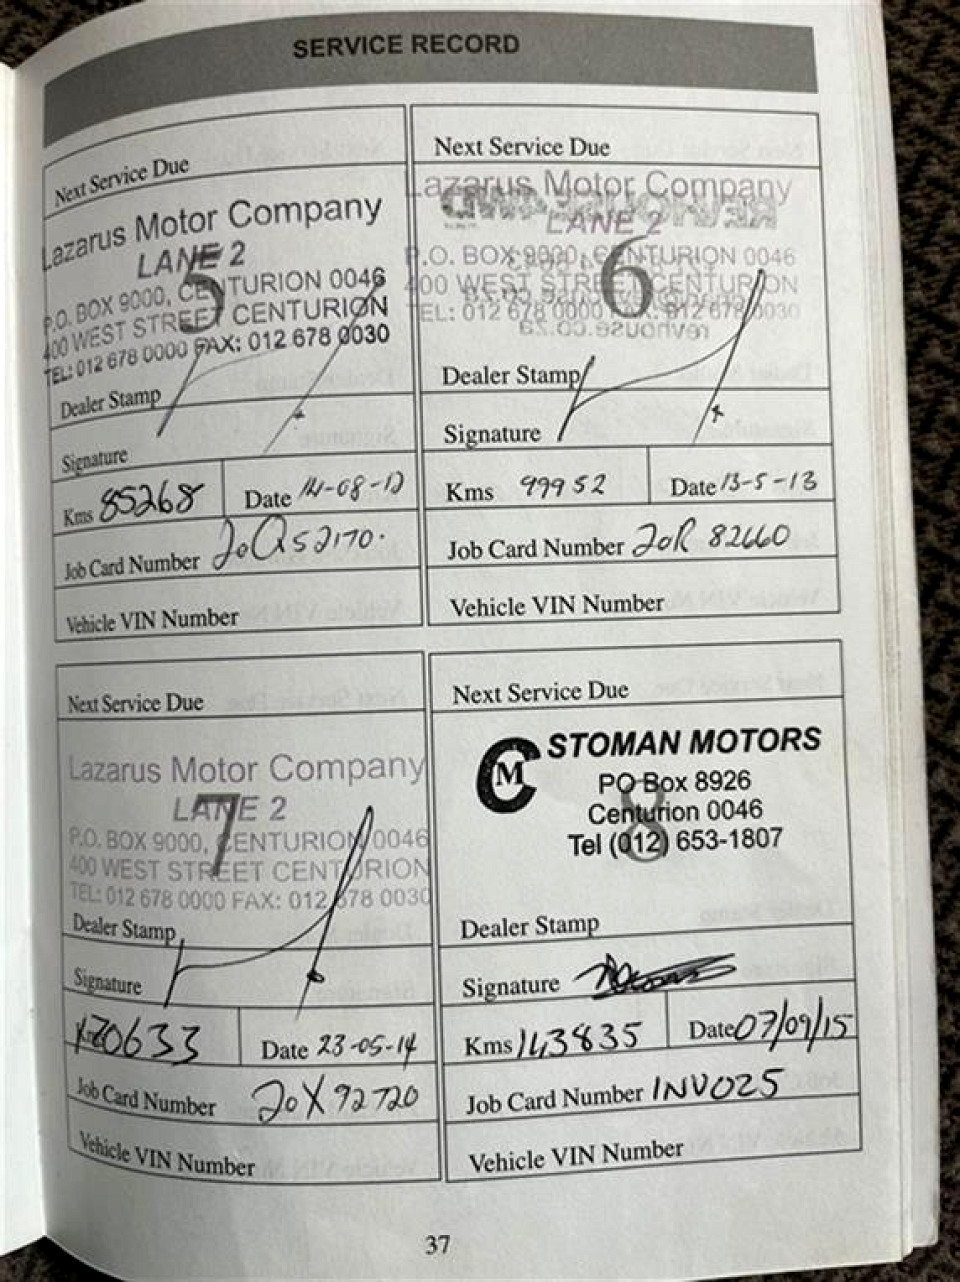 SERVICE RECORD
Next Service Due
Lazarus Motor Company
LANE 2
5
P.O. BOX 9000, CENTURION 0046
400 WEST STREET CENTURION
TEL: 012 678 0000 FAX: 012 678 0030
Dealer Stamp
Signature
Kms 85268 Date 14-08-12
Job Card Number JoQ52170.
Vehicle VIN Number
Next Service Due
Lazarus Motor Company
LANE 2
6
P.O. BOX 9000, CENTURION 0046
400 WEST STREET CENTURION
TEL: 012 678 0000 FAX: 012 678 0030
Dealer Stamp
Signature
Kms 99952 Date 13-5-13
Job Card Number JoR 82660
Vehicle VIN Number
Next Service Due
Lazarus Motor Company
LANE 2
7
P.O. BOX 9000, CENTURION 0046
400 WEST STREET CENTURION
TEL: 012 678 0000 FAX: 012 678 0030
Dealer Stamp
Signature
Date 23-05-14
Job Card Number JoX 92720
Vehicle VIN Number
Next Service Due
CM STOMAN MOTORS
PO Box 8926
8
Centurion 0046
Tel (012) 653-1807
Dealer Stamp
Signature
Kms 143835 Date 07/09/15
Job Card Number INV025
Vehicle VIN Number
37